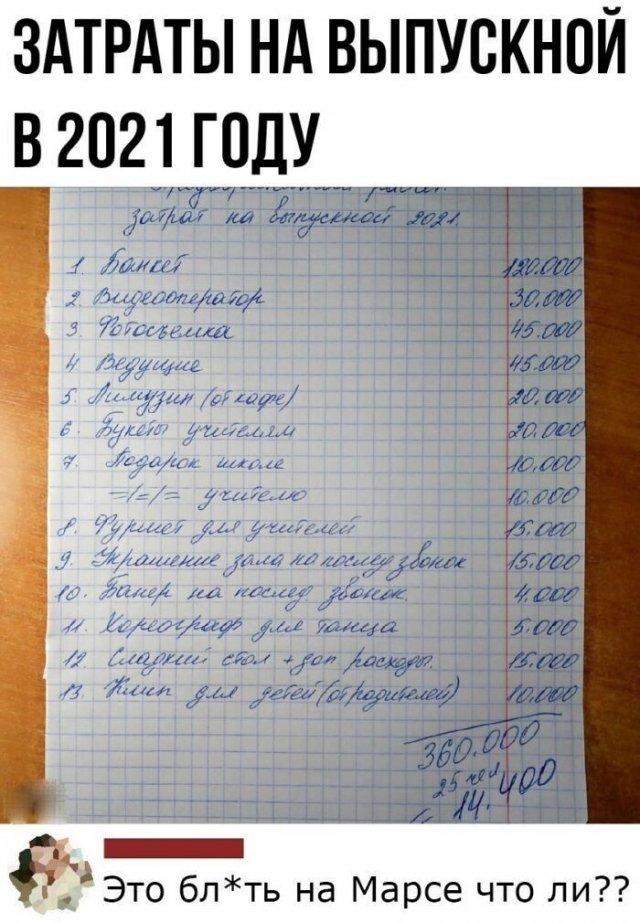 ЗАТРАТЫ НА ВЫПУСКНОЙ
В 2021 ГОДУ
затрат на выпускной 2021.
1. Банкет 120.000
2. Видеооператор 30.000
3. Фотосъемка 45.000
4. Ведущие 45.000
5. Лимузин (от кафе) 20.000
6. Букеты учителям 20.000
7. Подарок школе 10.000
=/=/= учителю 10.000
8. Фуршет для учителей 15.000
9. Украшение зала на послед звонок 15.000
10. Банер на послед звонок. 4.000
11. Хореограф для танца 5.000
12. Сладкий стол + доп расходы. 15.000
13. Клип для детей (от родителей) 10.000
360.000
25 чел
= 14.400
Это бл*ть на Марсе что ли??